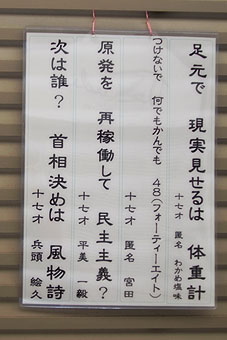 足元で 現実見せるは 体重計
十七才 匿名 わかめ塩味
つけないで 何でもかんでも 48(フォーティーエイト)
十七才 匿名 宮田
原発を 再稼働して 民主主義?
十七才 平美 一毅
次は誰? 首相決めは 風物詩
十七才 兵頭 絵久